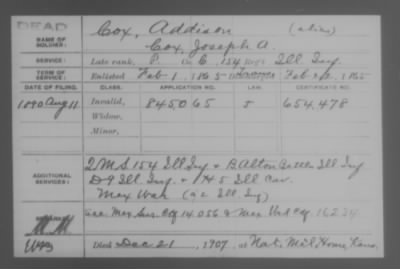 DEAD
NAME OF SOLDIER: Cox, Addison (alias)
Cox, Joseph A.
SERVICE: Late rank, P. Co. C, 154 Reg't Ill. Inf.
TERM OF SERVICE: Enlisted Feb 1, 1865 Discharged Feb 1865
DATE OF FILING. CLASS. APPLICATION NO. LAW. CERTIFICATE NO.
1890 Aug 11 Invalid, 845065 5 654,478
Widow,
Minor,
ADDITIONAL SERVICES: 2 M.S. 154 Ill Inf. & B Alton Batt Ill Inf
D 9 Ill. Inf. & H 5 Ill Cav.
Mex War (a 2 Ill. Inf)
Mex. Sur. Ctf 14,056 & Mex Ctf 16234
M.M.
Died Dec 21, 1907, at Nat. Mil. Home, Kans.